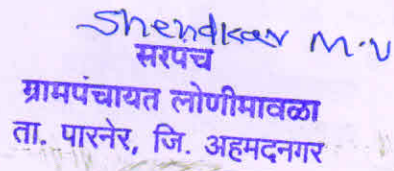 Shendkar M.V
सरपंच
ग्रामपंचायत लोणीमावळा
ता. पारनेर, जि. अहमदनगर